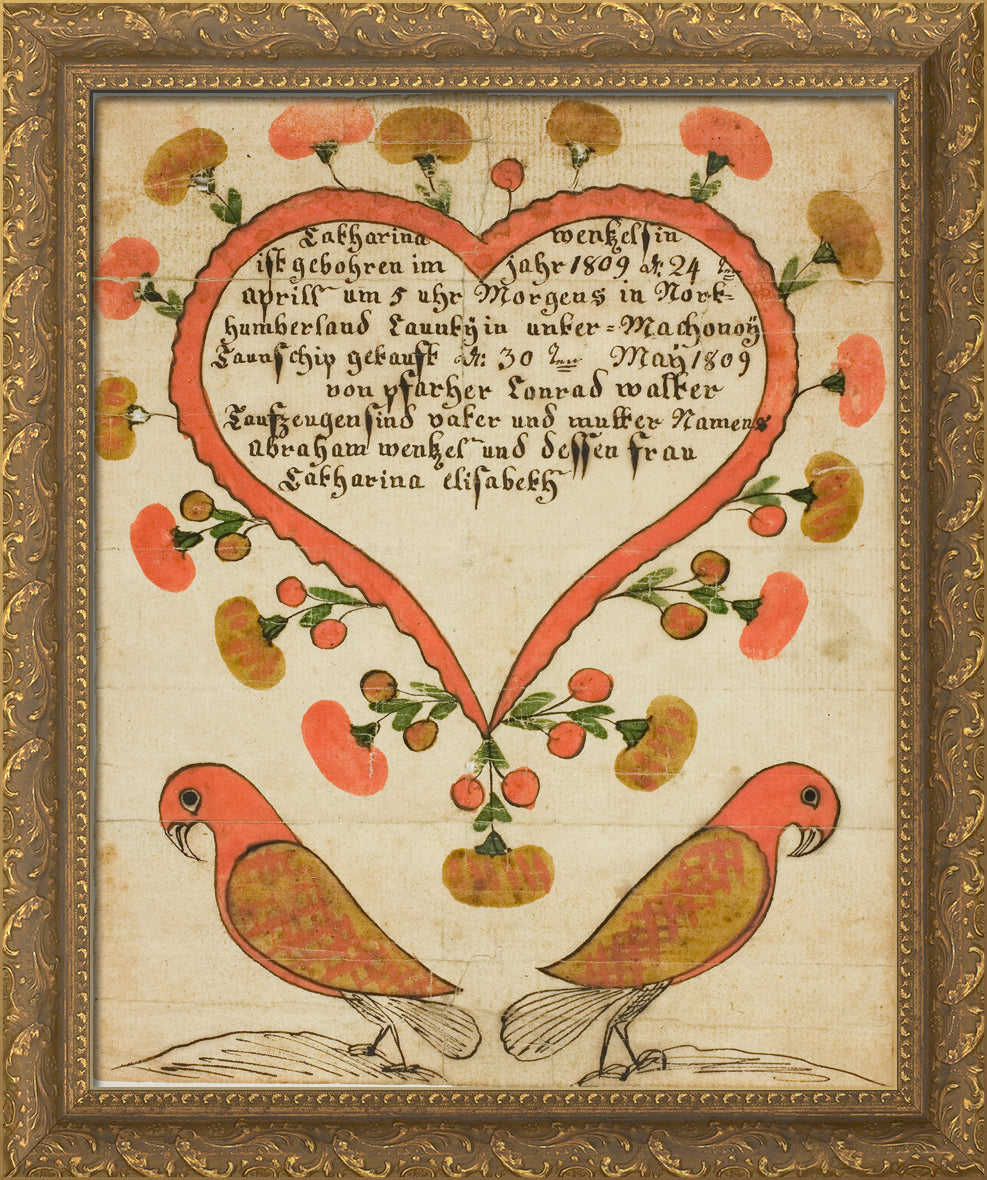 Catharina wentzelsin
ist gebohren im jahr 1809 dt. 24 ten
aprill um 5 uhr Morgens in Nort-
humberland Caunty in unter=Machonoÿ
Caunschip getauft dt: 30 ten Maÿ 1809
von pfarher Conrad walter
Taufzeugen sind vater und mutter Namens
abraham wentzel und dessen frau
Catharina elisabeth